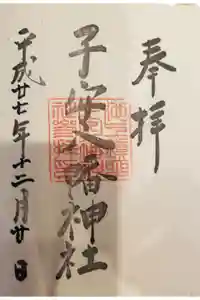 奉拝
子安八幡神社
平成廿七年十二月廿日